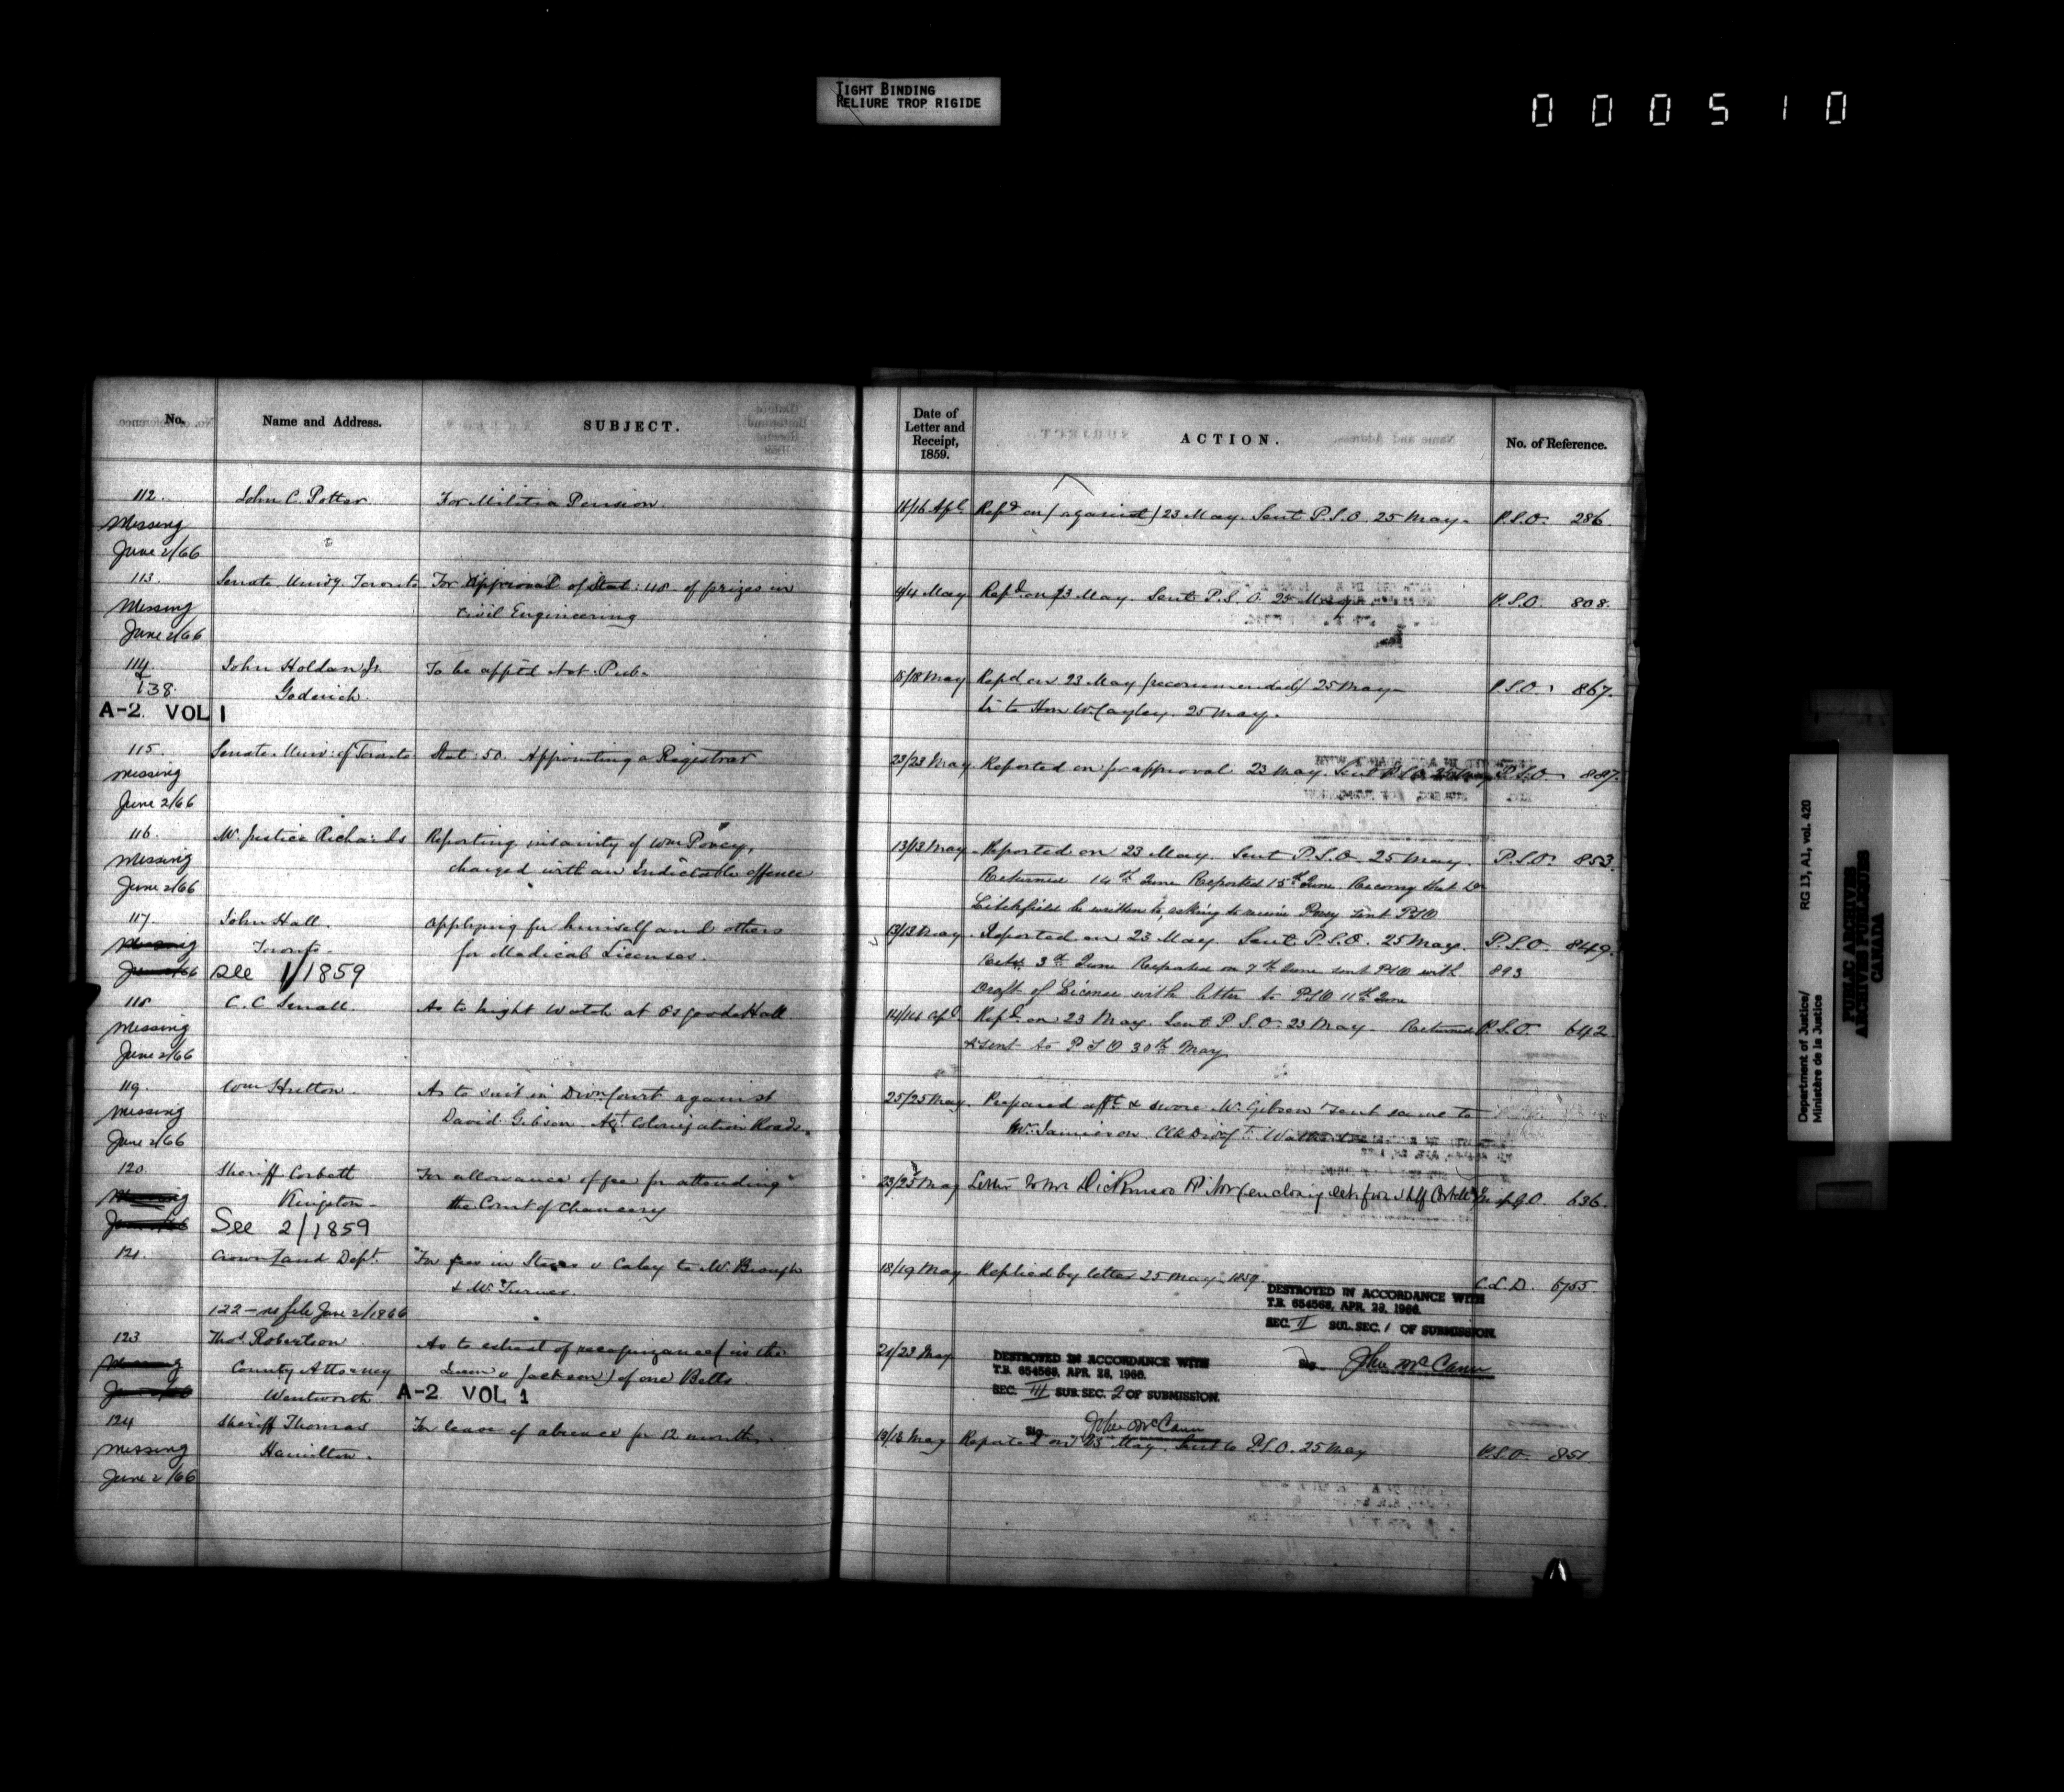 TIGHT BINDING
RELIURE TROP RIGIDE
000510
No.
Name and Address.
SUBJECT.
Date of
Letter and
Receipt,
1859.
ACTION.
No. of Reference.
112.
John C. Potter
For Militia Pension.
Missing
June 2/66
16 Apl
Repd on (against) 23 May. Sent P.S.O. 25 May.
P.S.O. 286.
113.
Senate. Univy. Toronto
For Approval of Stat: 48 of prizes in
Civil Engineering
Missing
June 2/66
May
Repd on 23 May. Sent P.S.O. 25 May
P.S.O. 808.
114.
&
138.
John Holdan Jr.
Goderich.
To be appt'd Not. Pub.
A-2. VOL 1
18 May
Repd on 23 May (recommended) 25 May
Lr to Hon W. Cayley. 25 May.
P.S.O. 867.
115.
Senate. Univ: of Toronto
Stat: 50. Appointing a Registrar
Missing
June 2/66
23/23 May
Reported on for approval 23 May. Sent P.S.O. 25 May
P.S.O. 887.
116.
Mr. Justice Richards
Reporting insanity of Wm Povey,
charged with an Indictable offence
Missing
June 2/66
13/13 May
Reported on 23 May. Sent P.S.O. 25 May.
Returned 14th June Reported 15th June. Recomg that Dr
Litchfield be written to, asking to receive Povey sent PSO
P.S.O. 853.
117.
John Hall.
Toronto.
Applying for himself and others
for Medical Licenses.
Missing
June 2/66
See 1/1859
13/13 May
Reported on 23 May. Sent P.S.O. 25 May.
3rd June Reported on 7th June sent PSO with
Draft of License with letter to PSO 11th June
P.S.O. 849.
893
118
C. C. Small.
As to night Watch at Osgoode Hall
Missing
June 2/66
14/14 Apl.
Repd on 23 May. Sent P.S.O. 23 May. Returned
& sent to P S O 30th May
P.S.O. 642.
119.
Wm Hutton.
As to suit in Divn Court against
David Gibson Agt Colonization Roads.
Missing
June 2/66
25/25 May.
Prepared afft & swore Mr. Gibson & sent same to
Mr. Jamieson
120.
Sheriff Corbett
Kingston
For allowance of fee for attending
the Court of Chancery
Missing
See 2/1859
23/25 May
Letter to Mr Dickinson
636.
121.
Crown Land Dept.
For fees in v Caley to Mr Brough
& Mr. Turner.
18/19 May
Replied by letter 25 May 1859.
C.L.D. 6755.
DESTROYED IN ACCORDANCE WITH
T.B. 654568, APR. 28, 1966.
SEC. II SUB. SEC. 1 OF SUBMISSION.
Sig. John McCann
122 - no file June 2/1966
123
Thos. Robertson
County Attorney
Wentworth.
As to estreat of recognizance (in the
Queen v Jackson) of one Betts.
Missing
A-2. VOL 1
21/23 May
DESTROYED IN ACCORDANCE WITH
T.B. 654568, APR. 28, 1966.
SEC. III SUB. SEC. 2 OF SUBMISSION.
Sig. John McCann
124
Sheriff Thomas
Hamilton.
For leave of absence for 12 months.
Missing
June 2/66
13/13 May
Reported on 23 May. Sent to P.S.O. 25 May
P.S.O. 851
Department of Justice/
Ministère de la Justice
RG 13, A1, vol. 420
PUBLIC ARCHIVES
ARCHIVES PUBLIQUES
CANADA